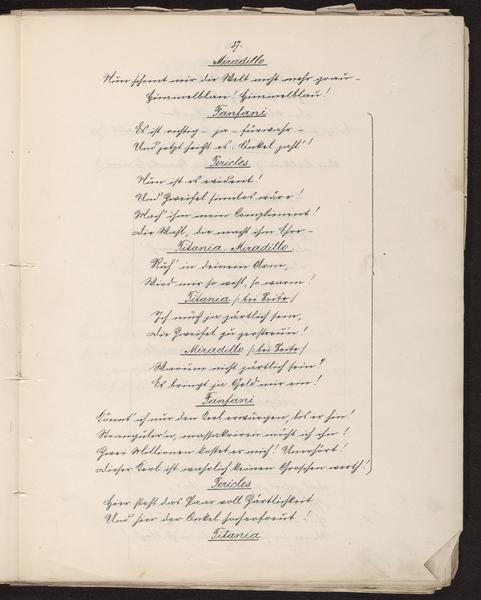 57.
Miradillo
Nun scheint mir die Welt nicht mehr grau –
Himmelblau! Himmelblau!
Fanfani
Es ist richtig – ja – fürwahr –
Und jetzt heißt es: Onkel zahl'!
Pericles
Nun ist es evident!
Und Zweifel sinnlos wäre!
Mach' ihm mein Compliment!
Die Wahl, die macht ihm Ehre –
Titania. Miradillo.
Ruh' in deinem Arm,
Wird mir so wohl, so warm!
Titania /: bei Seite /
Ich muß ja zärtlich sein,
Die Zweifel zu zerstreun!
Miradillo /: bei Seite /
Warum nicht zärtlich sein?
Es bringt ja Geld mir ein!
Fanfani
Könnt' ich nur den Kerl erwürgen, bis er hin!
Stranguliren, massakriren möcht ich ihn!
Zwei Millionen kostet er mich! Unerhört!
Dieser Kerl ist wahrlich keinen Groschen werth!
Pericles
Hier steht das Paar voll Zärtlichkeit
Und hier der Onkel hocherfreut!
Titania